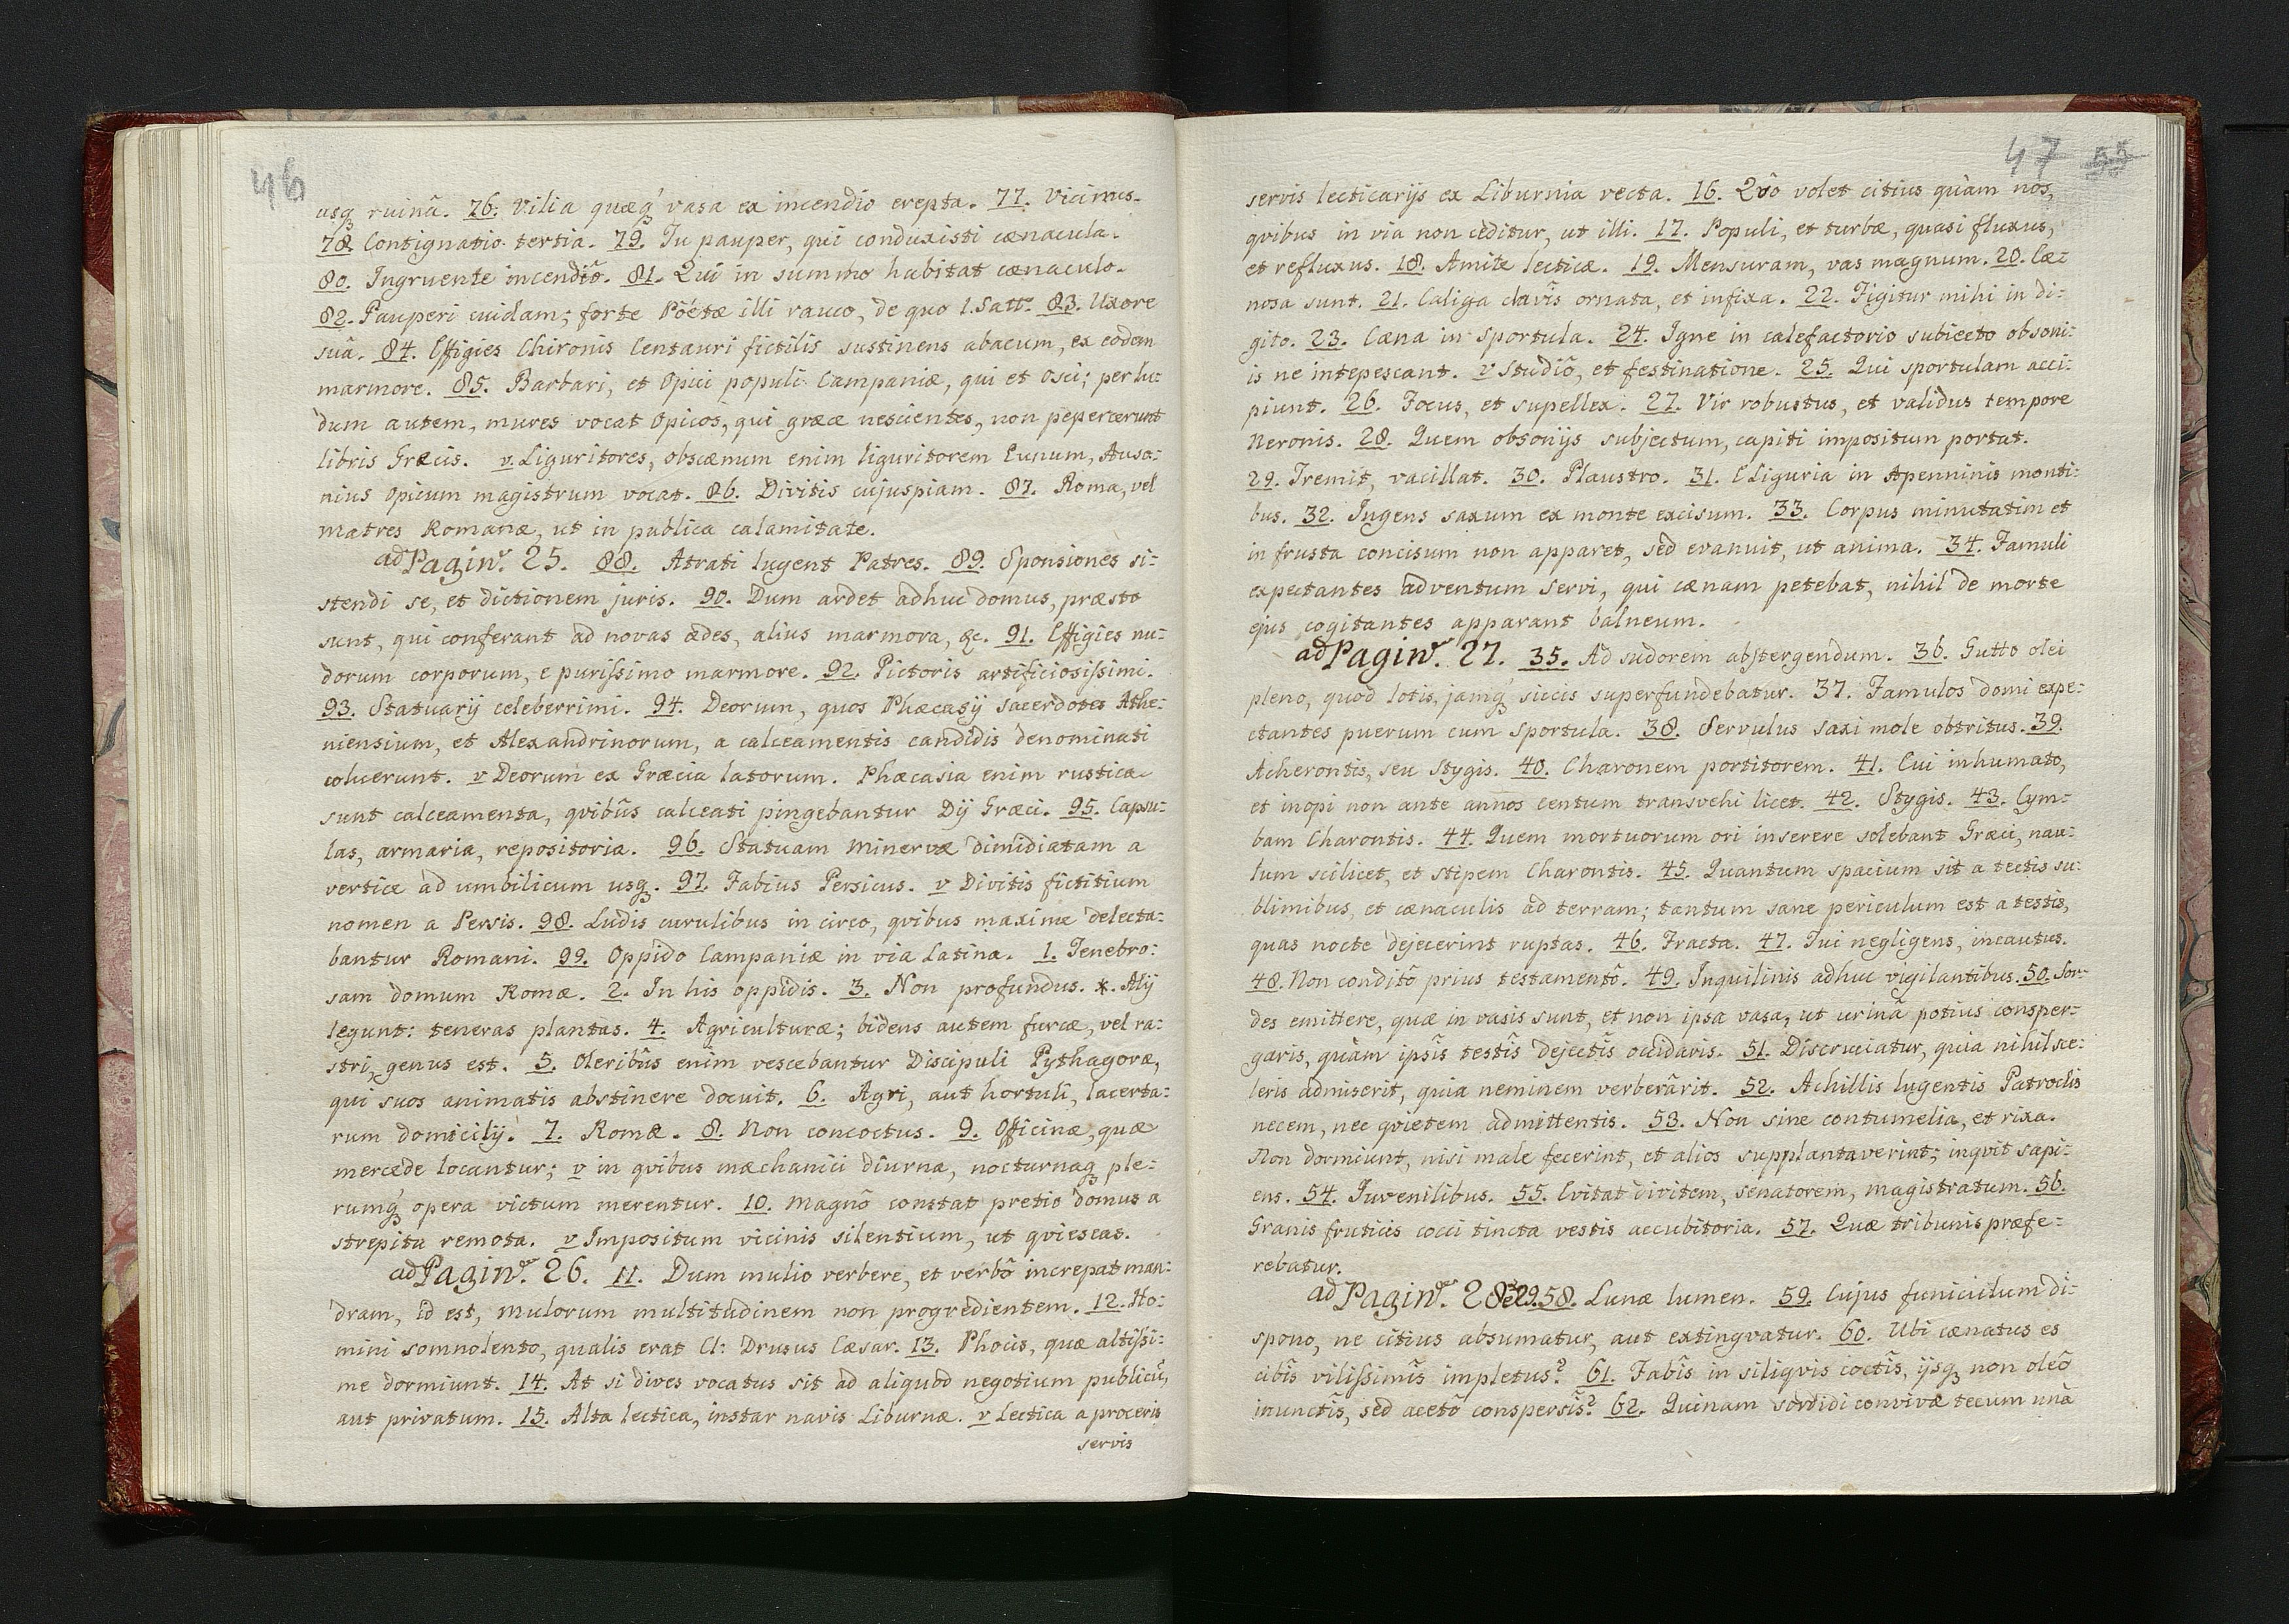 46
usq̃ ruinâ. 76. Vilia quæq̃ vasa ex incendio erepta. 77. Vicinus.
78. Contignatio tertia. 79. Tu pauper, qui conduxisti cænacula.
80. Ingruente incendiô. 81. Qui in summo habitat cænaculo.
82. Pauperi cuidam; forte Poëtæ illi rauco, de quo 1. Satr. 83. Uxore
suâ. 84. Effigies Chironis Centauri fictilis sustinens abacum, ex eodem
marmore. 85. Barbari, et Opici populi Campaniæ, qui et Osci; per lu-
dum autem, mures vocat Opicos, qui græce nescientes, non pepercerunt
libris Græcis. v. Liguritores, obscænum enim liguritorem Eunum, Auso:
nius Opicum magistrum vocat. 86. Divitis cujuspiam. 87. Roma, vel
matres Romanæ, ut in publica calamitate.
ad Pagin. 25. 88. Atrati lugent Patres. 89. Sponsiones si-
stendi se, et dictionem juris. 90. Dum ardet adhuc domus, præsto
sunt, qui conferant ad novas ædes, alius marmora, &c. 91. Effigies nu-
dorum corporum, e purissimo marmore. 92. Pictoris artificiosissimi.
93. Statuarij celeberrimi. 94. Deorum, quos Phæcasij sacerdotes Athe:
niensium, et Alexandrinorum, a calceamentis candidis denominati
coluerunt. v Deorum ex Græcia latorum. Phæcasia enim rustica
sunt calceamenta, qvibûs calceati pingebantur Dij Græci. 95. Capsu-
las, armaria, repositoria. 96. Statuam Minervæ dimidiatam a
vertice ad umbilicum usq̃. 97. Fabius Persicus. v Divitis fictitium
nomen a Persis. 98. Ludis curulibus in circo, qvibus maxime delecta:
bantur Romani. 99. Oppido Campaniæ in via Latina. 1. Tenebro:
sam domum Romæ. 2. In his oppidis. 3. Non profundus. *. Alij
legunt: teneras plantas. 4. Agriculturæ; bidens autem furcæ, vel ra-
stri, genus est. 5. Oleribûs enim vescebantur Discipuli Pythagoræ,
qui suos animatis abstinere docuit. 6. Agri, aut hortuli, lacerta:
rum domicilij. 7. Romæ. 8. Non concoctus. 9. Officinæ, quæ
mercede locantur; v in qvibus mæchanici diurna, nocturnaq̃ ple-
rumq̃ opera victum merentur. 10. Magnô constat pretio domus a
strepitu remota. v Impositum vicinis silentium, ut qviescas.
ad Pagin. 26. 11. Dum mulio verbere, et verbô increpat man:
dram, id est, mulorum multitudinem non progredientem. 12. Ho:
mini somnolento, qualis erat Cl: Drusus Cæsar. 13. Phocis, quæ altissi:
me dormiunt. 14. At si dives vocatus sit ad aliquod negotium publicũ,
aut privatum. 15. Alta lectica, instar navis Liburnæ. v Lectica a proceris
servis
47 55
servis lecticarijs ex Liburnia vecta. 16. Qvô volet citius quàm nos,
qvibus in via non ceditur, ut illi. 17. Populi, et turbæ, quasi fluxus,
et refluxus. 18. Amite lecticæ. 19. Mensuram, vas magnum. 20. Cæ:
nosa sunt. 21. Caliga clavîs ornata, et infixa. 22. Figitur mihi in di-
gito. 23. Cæna in sportula. 24. Igne in calefactorio subiecto obsoni:
is ne intepescant. v Studiô, et festinatione. 25. Qui sportulam acci:
piunt. 26. Focus, et supellex. 27. Vir robustus, et validus tempore
Neronis. 28. Quem obsonijs subjectum, capiti impositum portat.
29. Tremit, vacillat. 30. Plaustro. 31. E Liguria in Apenninis monti:
bus. 32. Ingens saxum ex monte excisum. 33. Corpus minutatim et
in frusta concisum non apparet, sed evanuit, ut anima. 34. Famuli
expectantes adventum servi, qui cænam petebat, nihil de morte
ejus cogitantes apparant balneum.
ad Pagin. 27. 35. Ad sudorem abstergendum. 36. Gutto olei
pleno, quod lotis, jamq̃ siccis superfundebatur. 37. Famulos domi expe:
ctantes puerum cum sportula. 38. Servulus saxi mole obtritus. 39.
Acherontis, seu Stygis. 40. Charonem portitorem. 41. Cui inhumato,
et inopi non ante annos centum transvehi licet. 42. Stygis. 43. Cym-
bam Charontis. 44. Quem mortuorum ori inserere solebant Græci, nau:
lum scilicet, et stipem Charontis. 45. Quantum spacium sit a tectis su:
blimibus, et cænaculis ad terram; tantum sane periculum est a testis,
quas nocte dejecerint ruptas. 46. Fracta. 47. Tui negligens, incautus.
48. Non conditô prius testamentô. 49. Inquilinis adhuc vigilantibus. 50. Sor-
des emittere, quæ in vasis sunt, et non ipsa vasa, ut urinâ potius consper-
garis, quàm ipsîs testîs dejectis occidaris. 51. Discruciatur, quia nihil sce:
leris admiserit, quia neminem verberârit. 52. Achillis lugentis Patroclis
necem, nec qvietem admittentis. 53. Non sine contumelia, et rixa.
Non dormiunt, nisi male fecerint, et alios supplantaverint; inqvit sapi-
ens. 54. Juvenilibus. 55. Evitat divitem, senatorem, magistratum. 56.
Granis fruticis cocci tincta vestis accubitoria. 57. Quæ tribunis præfe:
rebatur.
ad Pagin. 28 et 29. 58. Lunæ lumen. 59. Cujus funiculum di-
spono, ne citius absumatur, aut extingvatur. 60. Ubi cænatus es
cibîs vilissimîs impletus? 61. Fabîs in siliqvis coctîs, ijsq̃ non oleô
inunctîs, sed acetô conspersîs? 62. Quinam sordidi convivæ tecum unâ